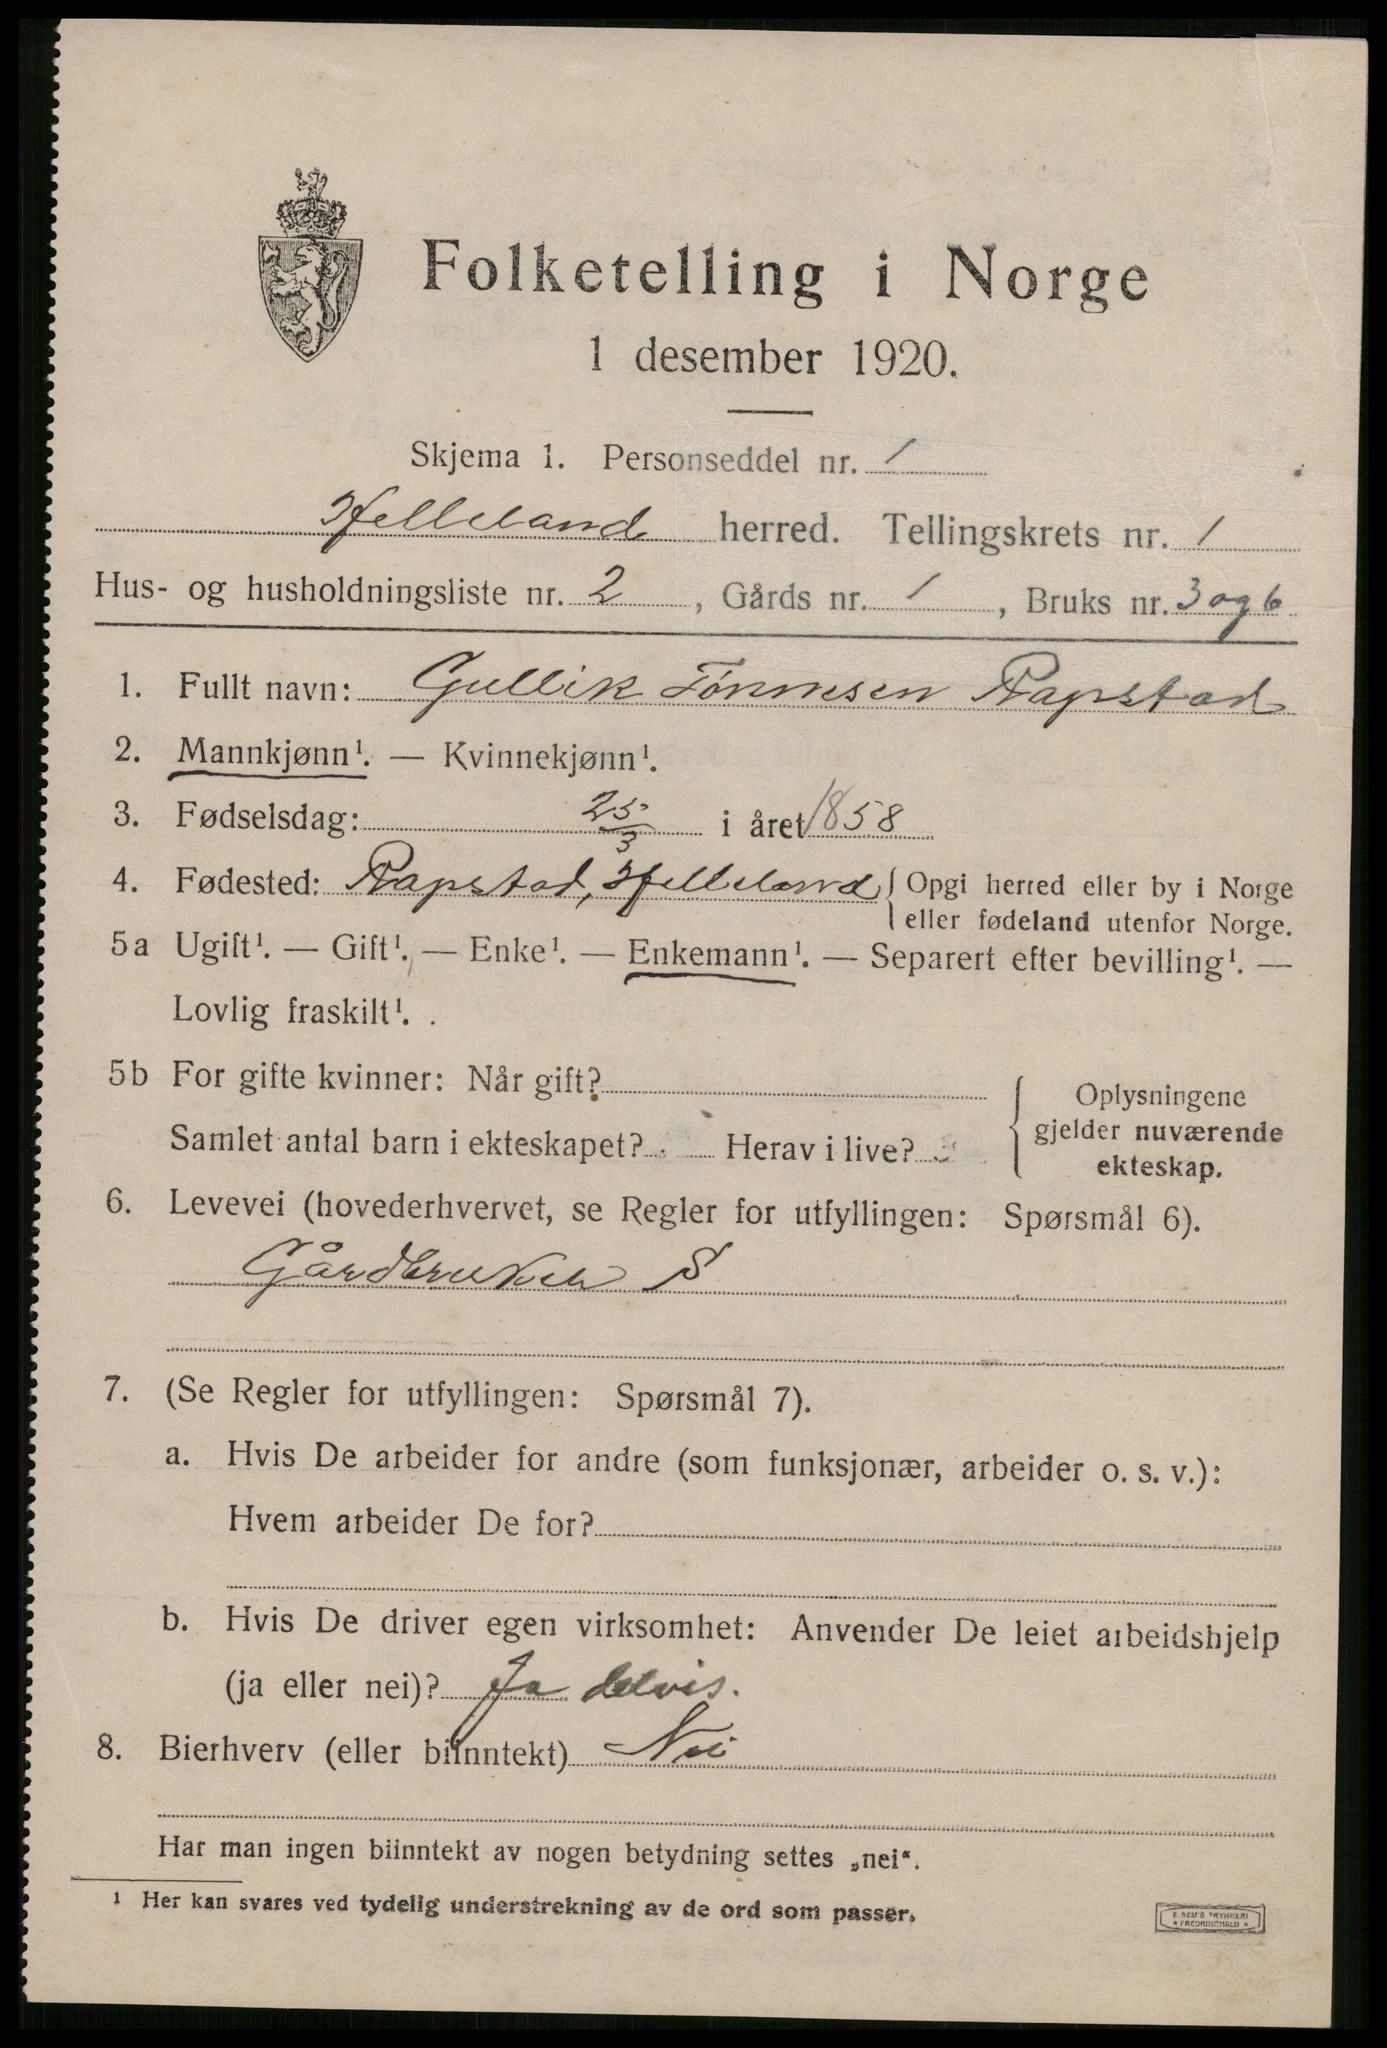 Folketelling i Norge
1 desember 1920.
Skjema 1. Personseddel nr. 1
Helleland herred. Tellingskrets nr. 1
Hus- og husholdningsliste nr. 2, Gårds nr. 1, Bruks nr. 3 og 6
1. Fullt navn: Gullik Tønnesen Rapstad
2. Mannkjønn¹. — Kvinnekjønn¹.
3. Fødselsdag: 25/3 i året 1858
4. Fødested: Rapstad, Helleland { Opgi herred eller by i Norge
eller fødeland utenfor Norge.
5a Ugift¹. — Gift¹. — Enke¹. — Enkemann¹. — Separert efter bevilling¹. —
Lovlig fraskilt¹.
5b For gifte kvinner: Når gift?
Samlet antal barn i ekteskapet? Herav i live?
{ Oplysningene
gjelder nuværende
ekteskap.
6. Levevei (hovederhvervet, se Regler for utfyllingen: Spørsmål 6).
Gårdbruker S
7. (Se Regler for utfyllingen: Spørsmål 7).
a. Hvis De arbeider for andre (som funksjonær, arbeider o. s. v.):
Hvem arbeider De for?
b. Hvis De driver egen virksomhet: Anvender De leiet arbeidshjelp
(ja eller nei)? Ja delvis.
8. Bierhverv (eller biinntekt) Nei
Har man ingen biinntekt av nogen betydning settes „nei“.
¹ Her kan svares ved tydelig understrekning av de ord som passer.
E. SEM'S TRYKKERI
* FREDRIKSHALD *